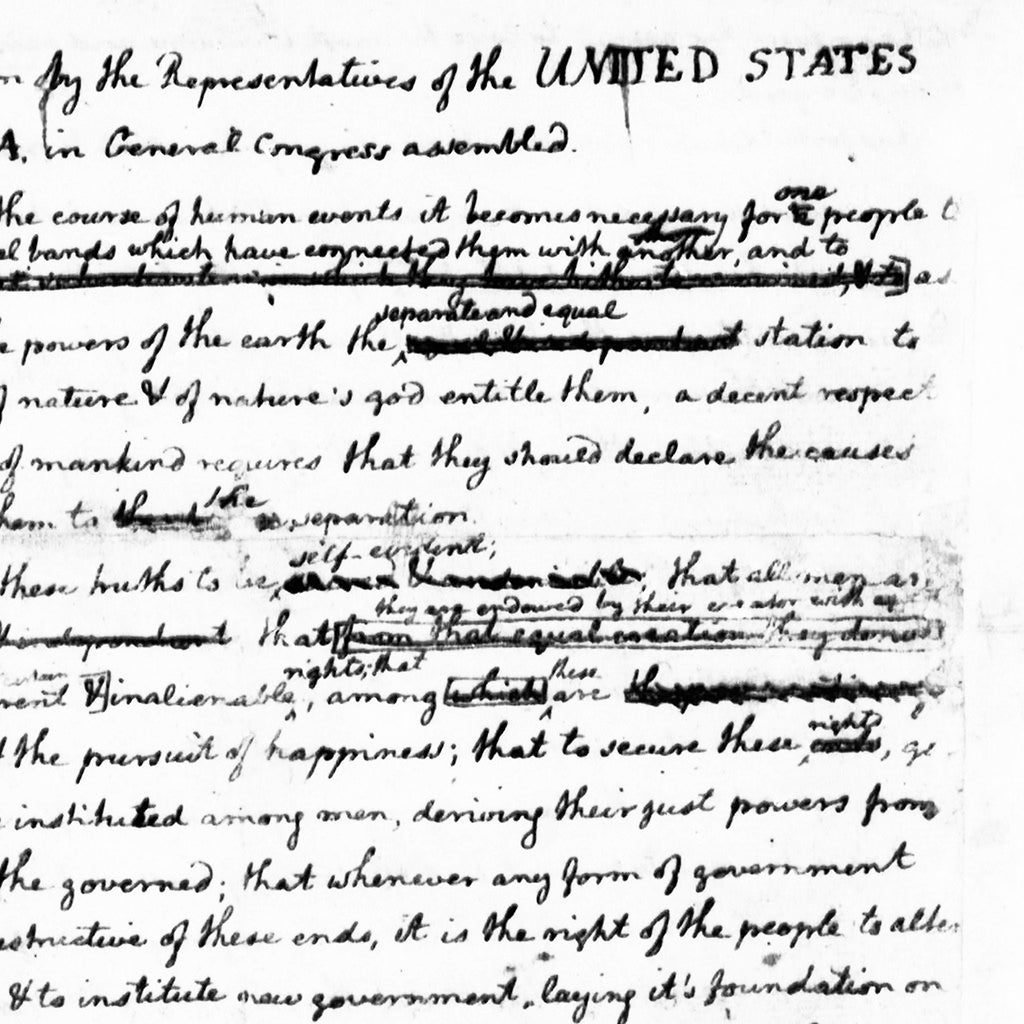 by the Representatives of the UNITED STATES
A, in General Congress assembled.
one
the course of human events it becomes necessary for a people t
bands which have connected them with another, and to
as
separate and equal
powers of the earth the station to
of nature & of nature's god entitle them, a decent respect
of mankind requires that they should declare the causes
to the separation.
self-evident;
these truths to be that all men ar
they are endowed by their creator with
that from that equal creation they
certain rights; that these
& inalienable, among which are
rights
the pursuit of happiness; that to secure these ends, go
instituted among men, deriving their just powers from
the governed; that whenever any form of government
of these ends, it is the right of the people to alter
& to institute new government, laying it's foundation on